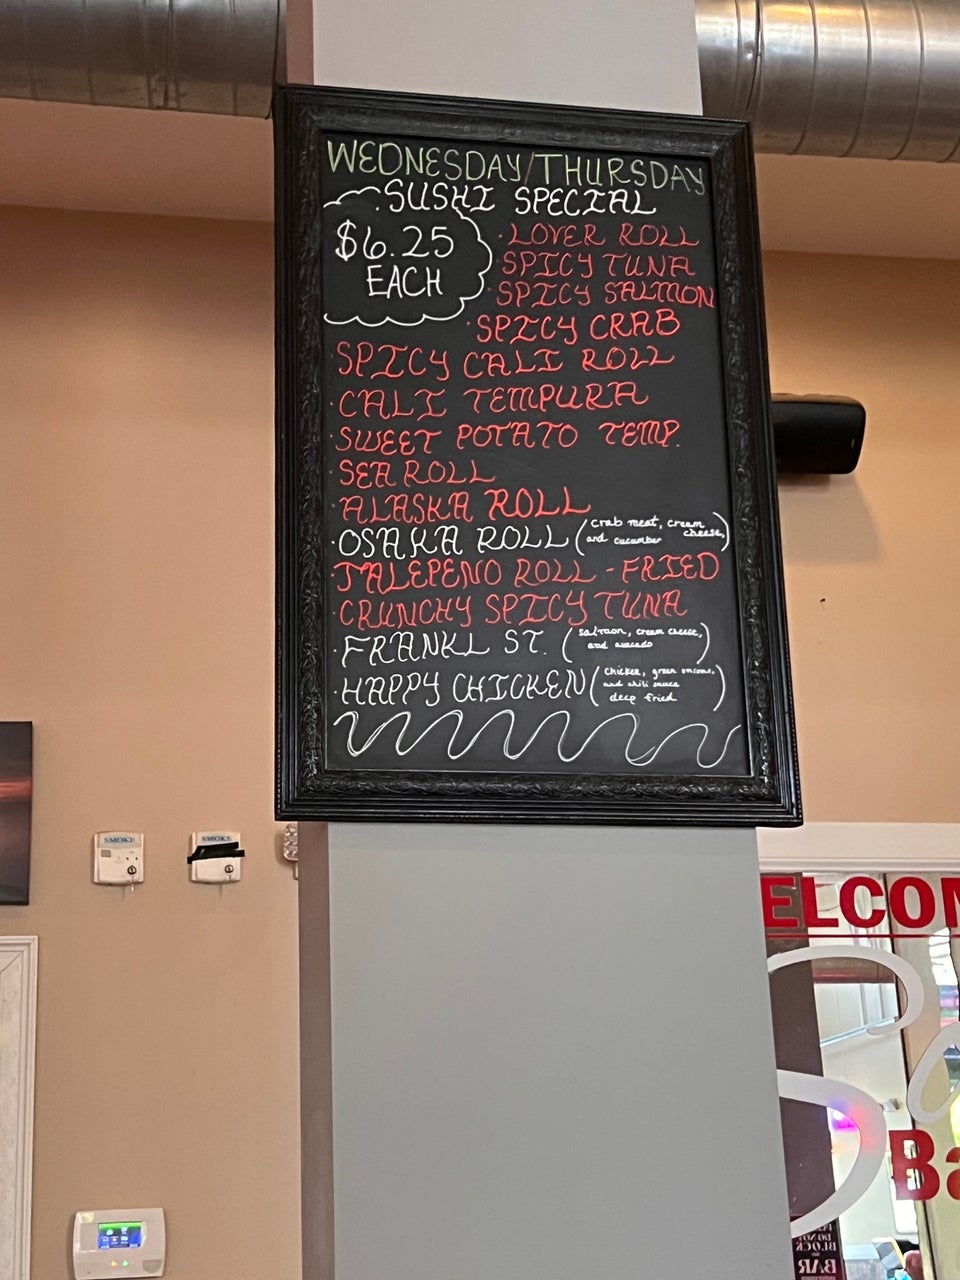 WEDNESDAY/THURSDAY
SUSHI SPECIAL
$6.25
EACH
· LOVER ROLL
· SPICY TUNA
· SPICY SALMON
· SPICY CRAB
· SPICY CALI ROLL
· CALI TEMPURA
· SWEET POTATO TEMP.
· SEA ROLL
· ALASKA ROLL
· OSAKA ROLL (crab meat, cream cheese, and cucumber)
· JALEPENO ROLL - FRIED
· CRUNCHY SPICY TUNA
· FRANKL ST. (salmon, cream cheese, and avocado)
· HAPPY CHICKEN (chicken, green onions, and chili sauce deep fried)
SMOKE
SMOKE
ELCOM
Ba
DO NOT
BLOCK
BAR